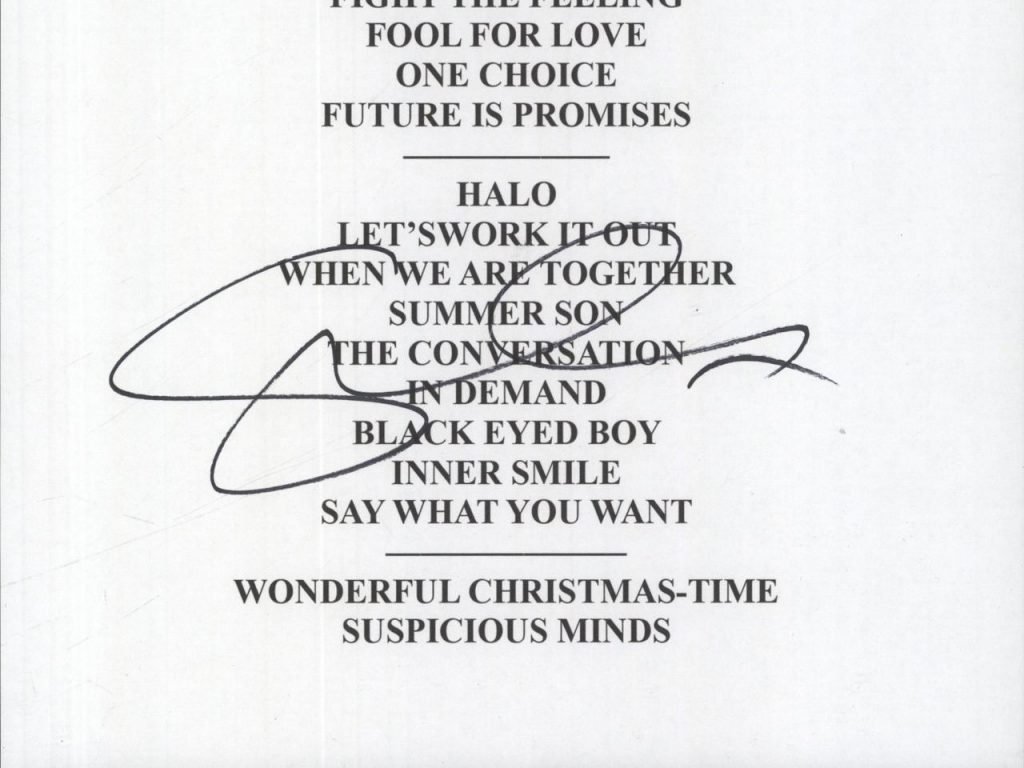 FIGHT THE FEELING
FOOL FOR LOVE
ONE CHOICE
FUTURE IS PROMISES
HALO
LET’SWORK IT OUT
WHEN WE ARE TOGETHER
SUMMER SON
THE CONVERSATION
IN DEMAND
BLACK EYED BOY
INNER SMILE
SAY WHAT YOU WANT
WONDERFUL CHRISTMAS-TIME
SUSPICIOUS MINDS